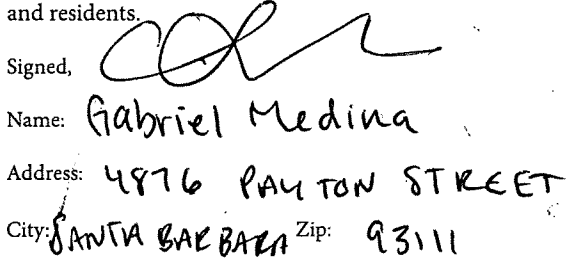 and residents.
Signed,
Name: Gabriel Medina
Address: 4876 PAYTON STREET
City: SANTA BARBARA Zip: 93111